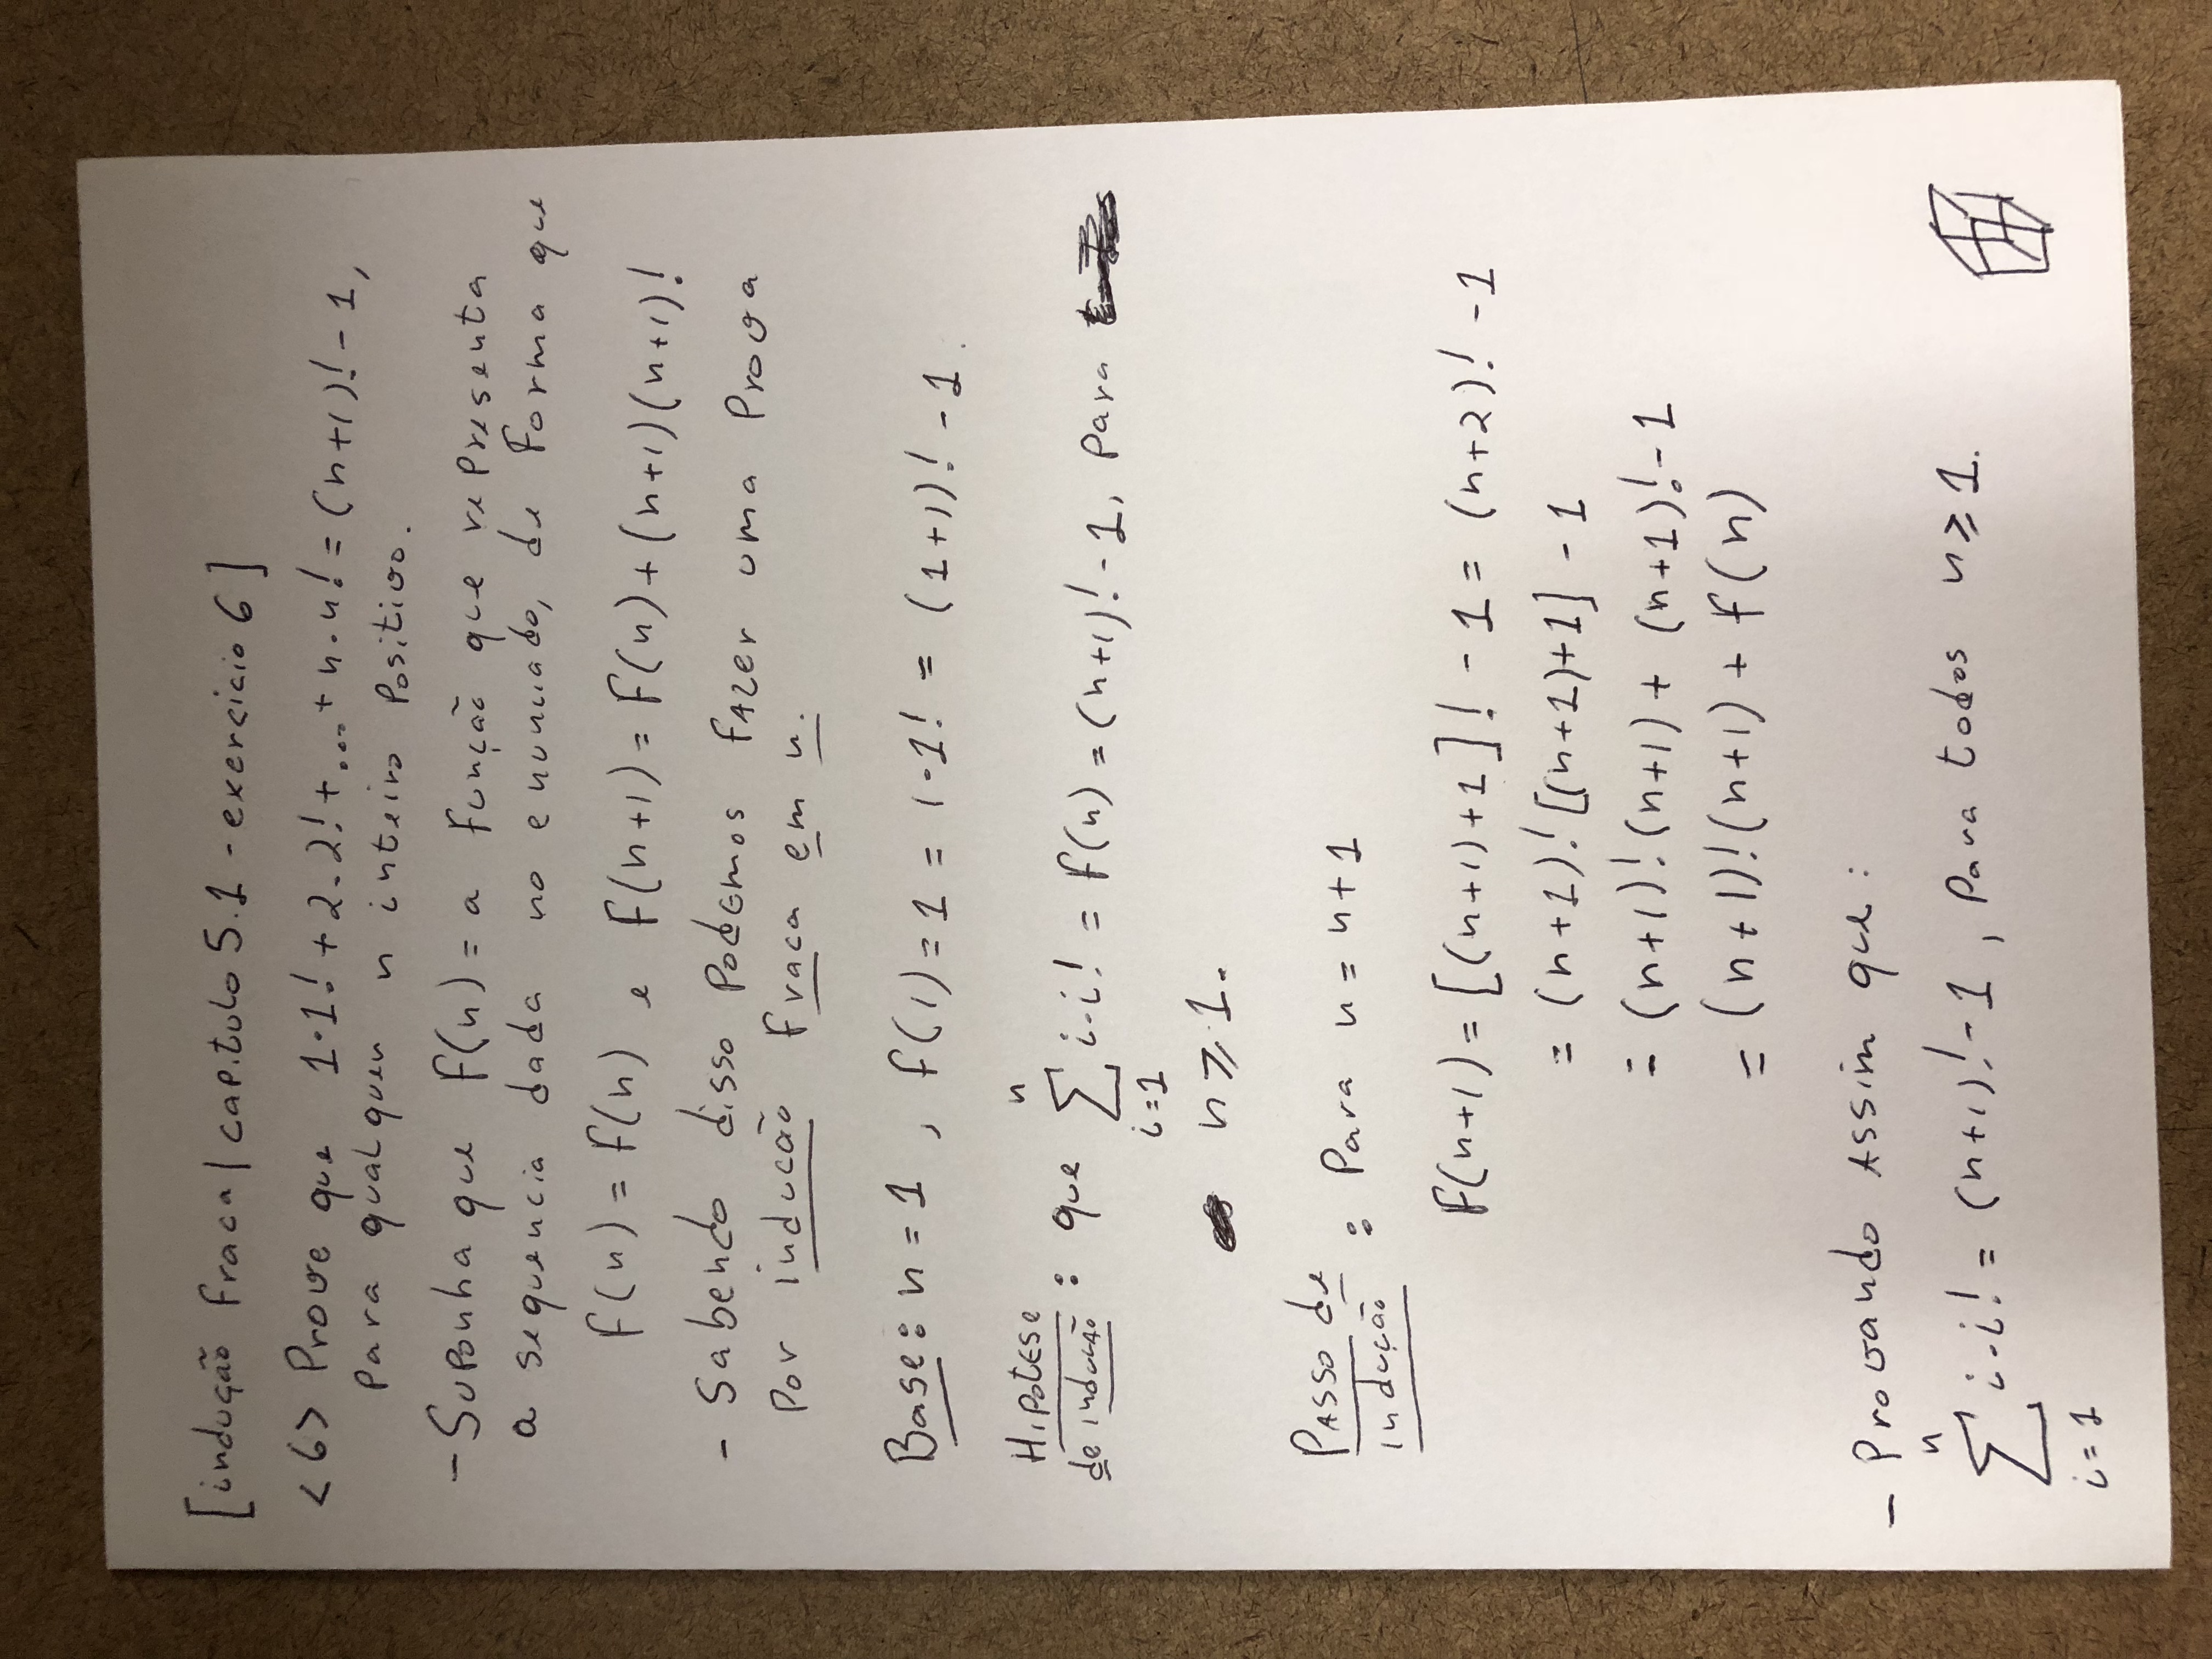 [indução fraca | capitulo 5.1 - exercicio 6]
<6> Prove que 1·1! + 2·2! + ... + n·n! = (n+1)! - 1,
para qualquer n inteiro positivo.
- Suponha que f(n) = a função que representa
a sequencia dada no enunciado, de forma que
f(n) = f(n) e f(n+1) = f(n) + (n+1)(n+1)!
- Sabendo disso podemos fazer uma prova
por inducão fraca em n.
Base: n = 1, f(1) = 1 = 1·1! = (1+1)! - 1.
Hipotese
de indução : que
n
∑ i·i! = f(n) = (n+1)! - 1, para
i=1
n ⩾ 1.
Passo de
indução : Para n = n+1
f(n+1) = [(n+1)+1]! - 1 = (n+2)! - 1
= (n+1)! [(n+1)+1] - 1
= (n+1)! (n+1) + (n+1)! - 1
= (n+1)! (n+1) + f(n)
- Provando assim que:
n
∑ i·i! = (n+1)! - 1, para todos n ⩾ 1.
i=1